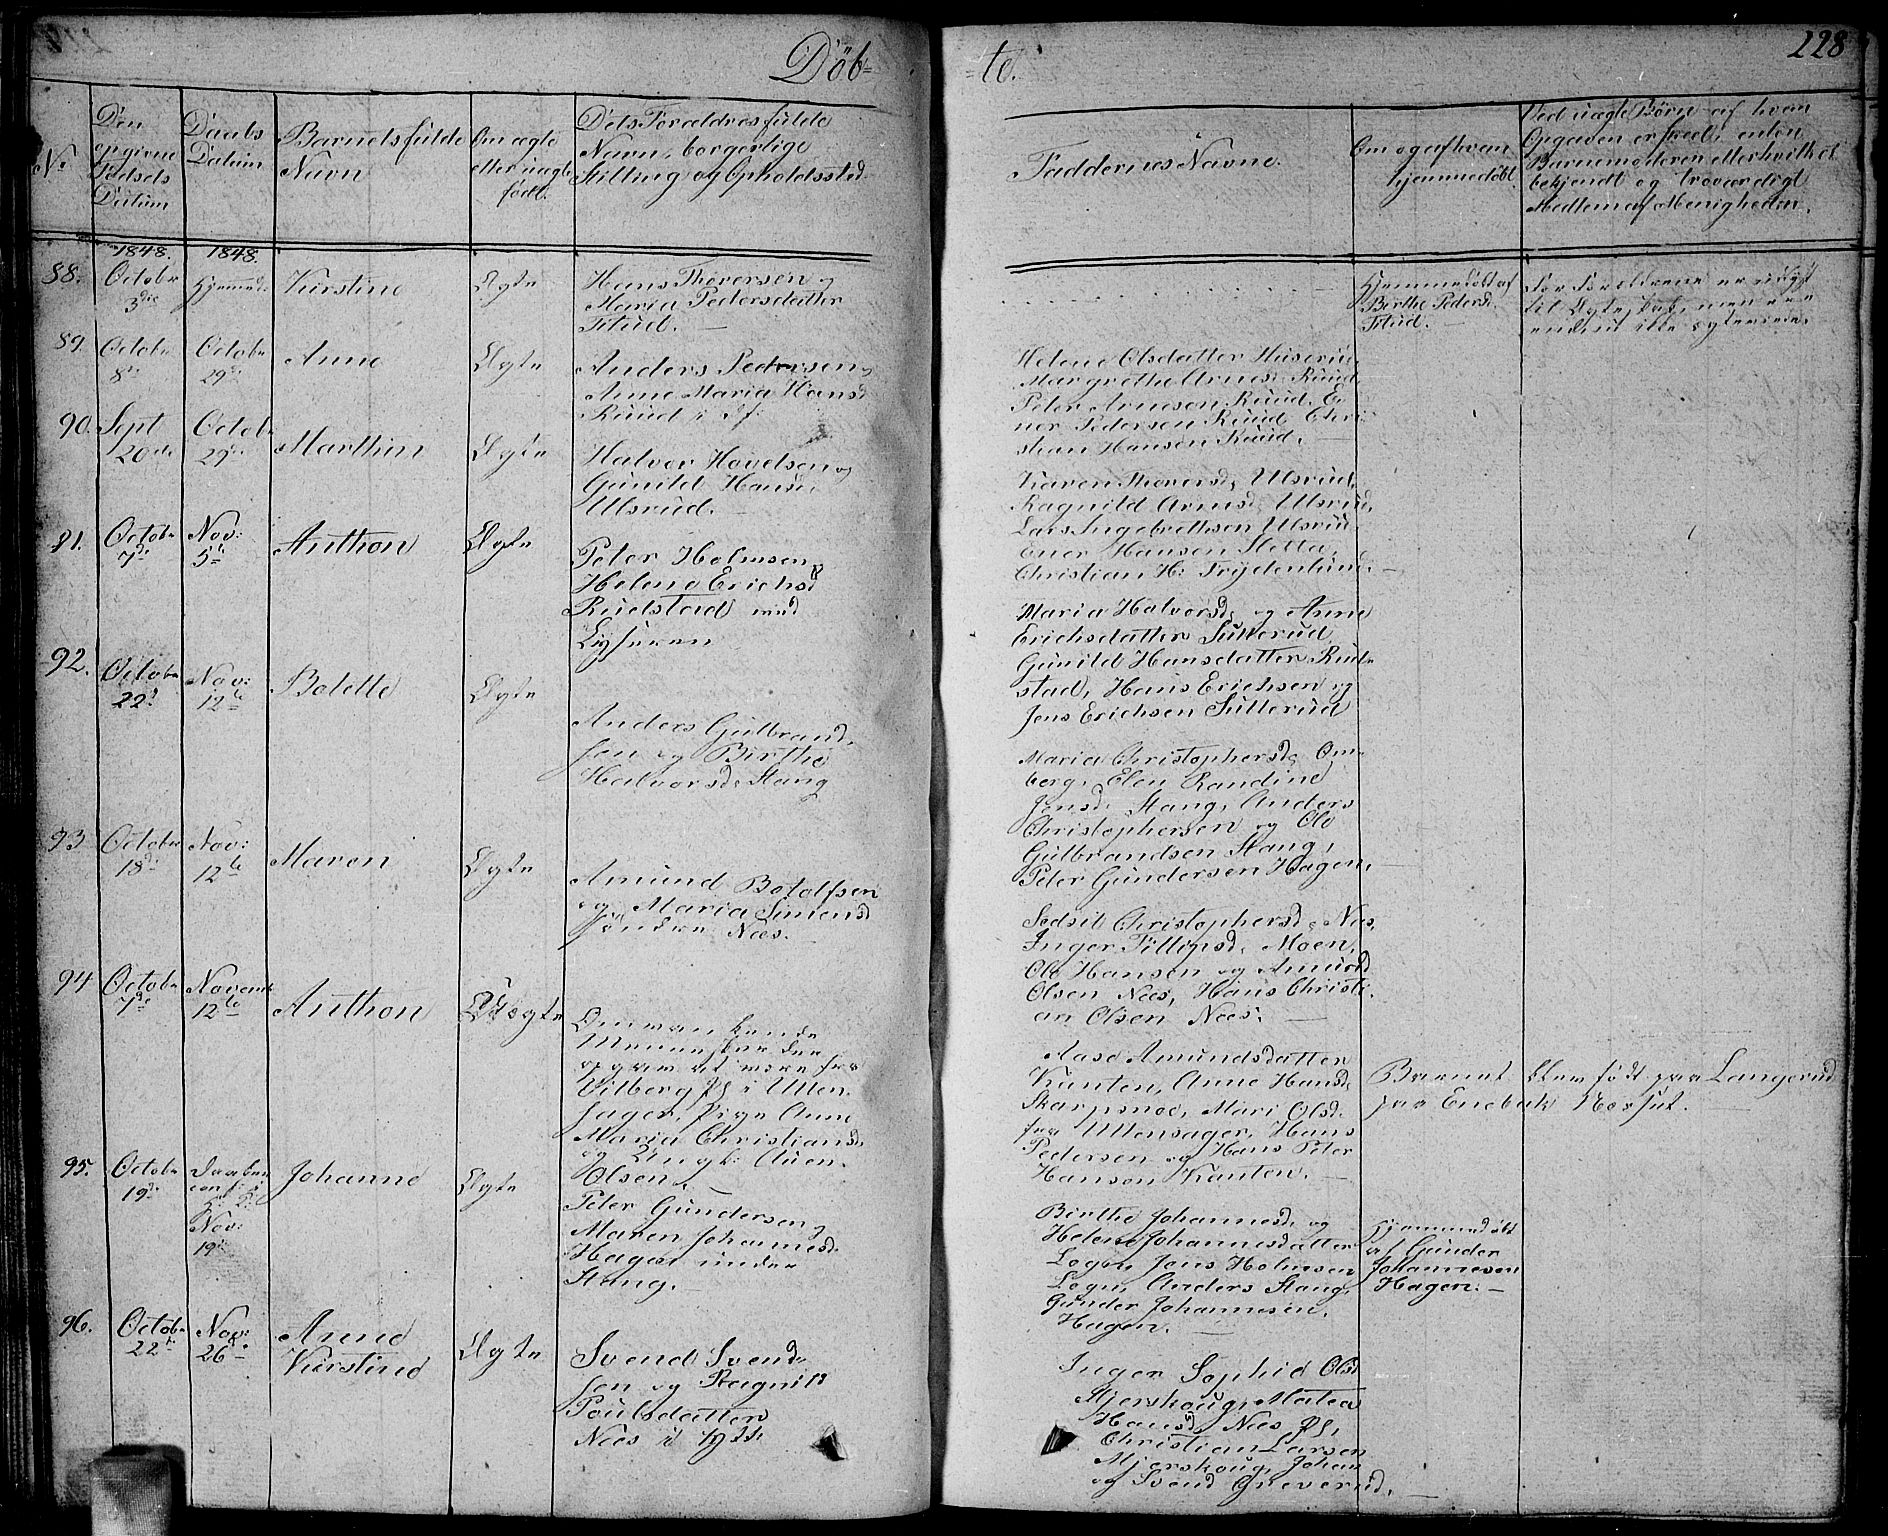 Döb=
=te.
228
No
Den opgivne Fødsels Datum
Daabs Datum
Barnets fulde Navn
Om ægte eller uægte født.
Dets Forældres fulde Navn, borgerlige Stilling og Opholdssted
Faddernes Navne.
Om og af hvem hjemmedøbt.
Ved uægte Børn af hvem Opgaven er skeed, enten Barnemoderen eller hvilket bekjendt og troværdigt Medlem af Menigheden.
1848. 1848.
88.
Octobr
3die
Kirstine
Ægte
Hans Thoresen og
Maria Pedersdatter
Hjemmedøbt af
Birthe Peders
89.
Octobr
8de
Octobr
29de
Anne
Ægte
Anders Pedersen
Anne Maria Hans
Ruud
Helene Olsdatter Huserud
Margrethe Arnes Ruud
Peter Arnesen Ruud. Ei
ner Pedersen Ruud Chri
stian Hansen Ruud.
90.
Sept
20de
Octobr
29de
Marthin
Ægte
Halvor Hovelsen og
Gunild Hansd
Ulsrud.
Karen Thoresd. Ulsrud,
Ragnild Arnesd. Ulsrud,
Lars Ingebrethsen Ulsrud
Ener Hansen Sletta,
Christian H: Frydenlund.
91.
Octobr
7de
Nov:
5te
Anthon
Ægte
Peter Holmsen
Helene Erichsd
Rudstad
Maria Halvorsd. og Anne
Erichsdatter Sutterud
Gunild Hansdatter Rud
stad, Hans Erichsen og
Jens Erichsen Sutterud
92.
Octobr
22d
Nov:
12te
Bolette
Ægte
Anders Gulbrand
sen og Birthe
Halvorsd. Stang
Maria Christophersd. Om
berg, Elen Randine
Jensd. Stang, Anders
Christophersen og Ole
Gulbrandsen Stang,
Peter Gundersen Hagen.
93
Octobr
18de
Nov:
12te
Maren
Ægte
Amund Botolfsen
og Maria Simensd
Søndre Næs.
Christophersd. Næs,
Inger Moen,
Ole Hansen og Amund
Olsen Næs, Hans Christi
an Olsen Næs.
94
Octobr
7de
Novemb
12te
Anthon
Uægte
Vilberg i Ullen
sager, Pige Anne
Maria Christiansd.
og Ungk: Auen
Olsen.
Aase Amundsdatter
Kanten, Anne Hansd.
Skarpsnoe, Mari Olsd.
fra Ullensager, Hans
Pedersen og Hans Peter
Hansen Kanten.
Barnet blev født paa Langerud
paa Enebak
95.
Octobr
19de
Nov:
19de
Johanne
Ægte
Peter Gundersen
Maren Johannesd.
Hagen under
Stang.
Birthe Johannesd. og
Helene Johannesdatter
Jens Holmsen
Anders Stang,
Gunder Johannesen
Hagen.
Hjemmedøbt
af Gunder
Johannesen
Hagen.
96.
Octob
22de
Nov:
26de
Anne
Kirstine
Ægte
Svend Svend
sen og Ragnild
Poulsdatter
Næs
Inger Sophie Olsd
Mjerskoug, Mathea
Hansd Næs
Christian Larsen
Mjerskoug, Johan
og Svend Greverud.